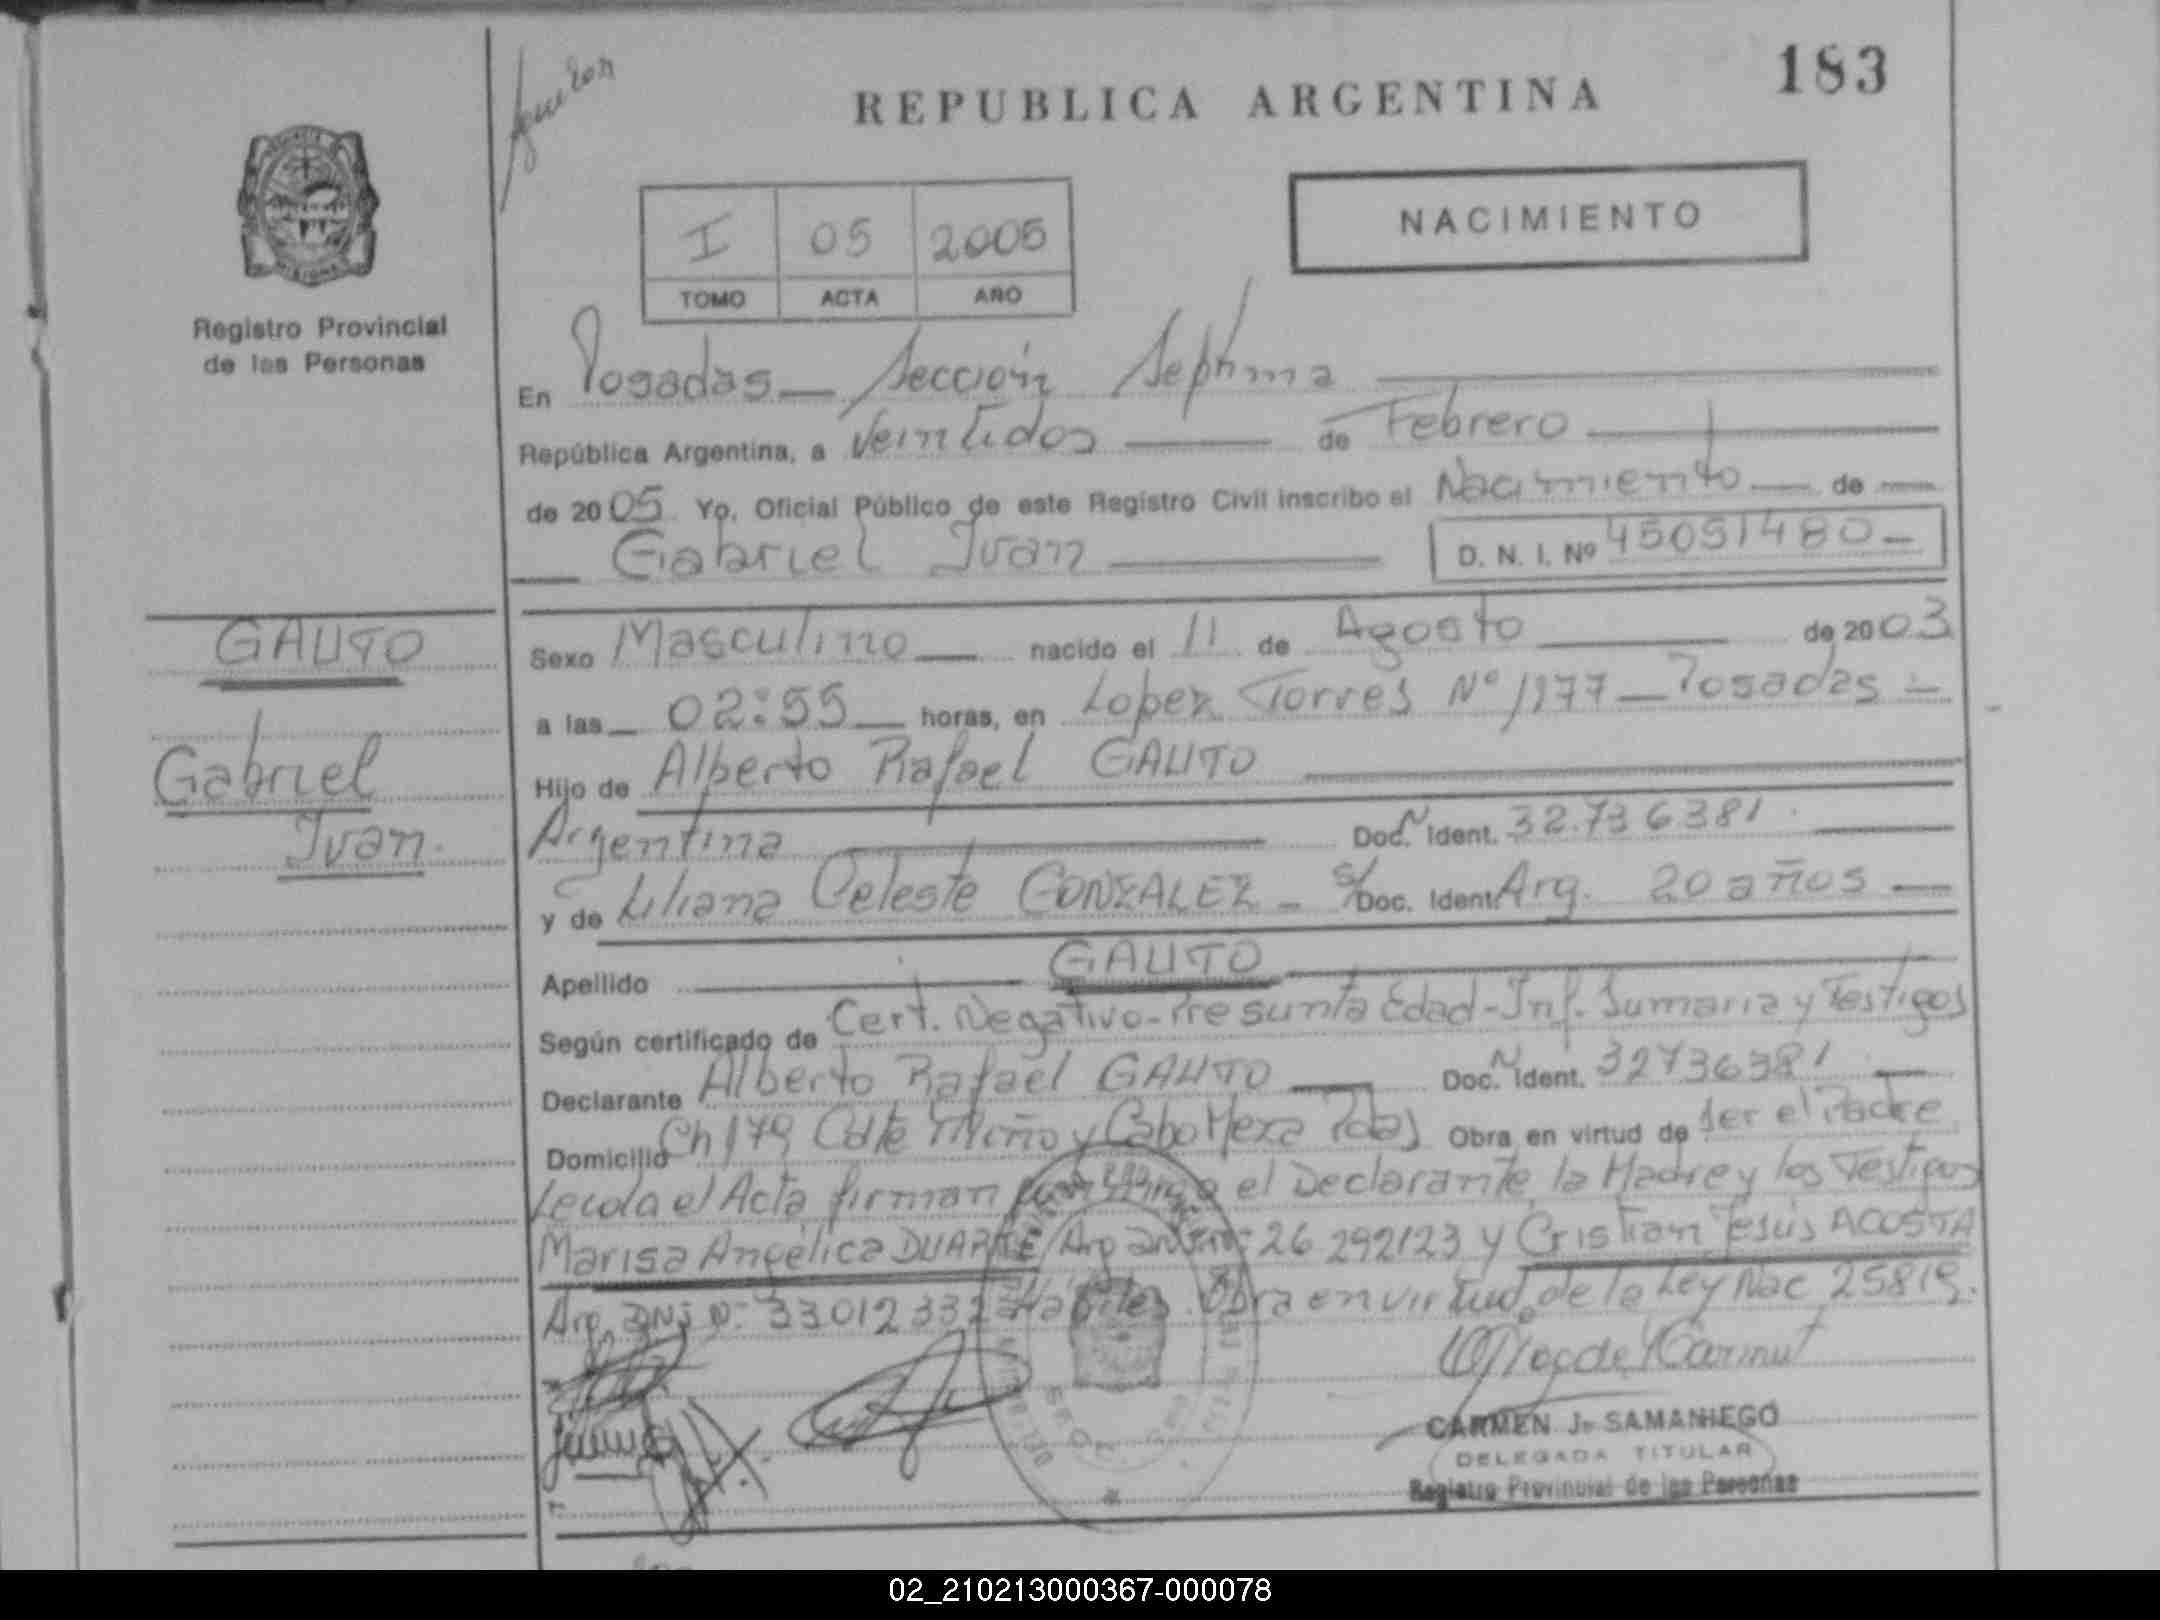 183
REPUBLICA ARGENTINA
NACIMIENTO
I 05 2005
TOMO ACTA AÑO
Registro Provincial
de las Personas
En Posadas — Sección Septima
República Argentina, a Veintidos de Febrero
de 2005 Yo, Oficial Público de este Registro Civil inscribo el Nacimiento de
Gabriel Ivan D. N. I. Nº 45051480
GAUTO
Gabriel
Ivan.
Sexo Masculino nacido el 11 de Agosto de 2003
a las 02:55 horas, en Lopez Torres Nº 1177 — Posadas
Hijo de Alberto Rafael GAUTO
Argentina Doc. Ident. 32.736381
y de Liliana Celeste GONZALEZ - s/ Doc. Ident. Arg. 20 años
Apellido GAUTO
Según certificado de Cert. Negativo - Presunta Edad - Inf. Sumaria y Testigos
Declarante Alberto Rafael GAUTO Doc. Ident. 32736381
Domicilio Ch 179 y Cabo Obra en virtud de ser el Padre
Leida el Acta firman el Declarante, la Madre y los Testigos
Marisa Angélica DUARTE Arg 26 292123 y Cristian Jesús ACOSTA
Arg DNI Nº 33012332 Obra en virtud de la Ley Nac 25819.
CARMEN J. SAMANIEGO
DELEGADA TITULAR
Registro Provincial de las Personas
02_210213000367-000078